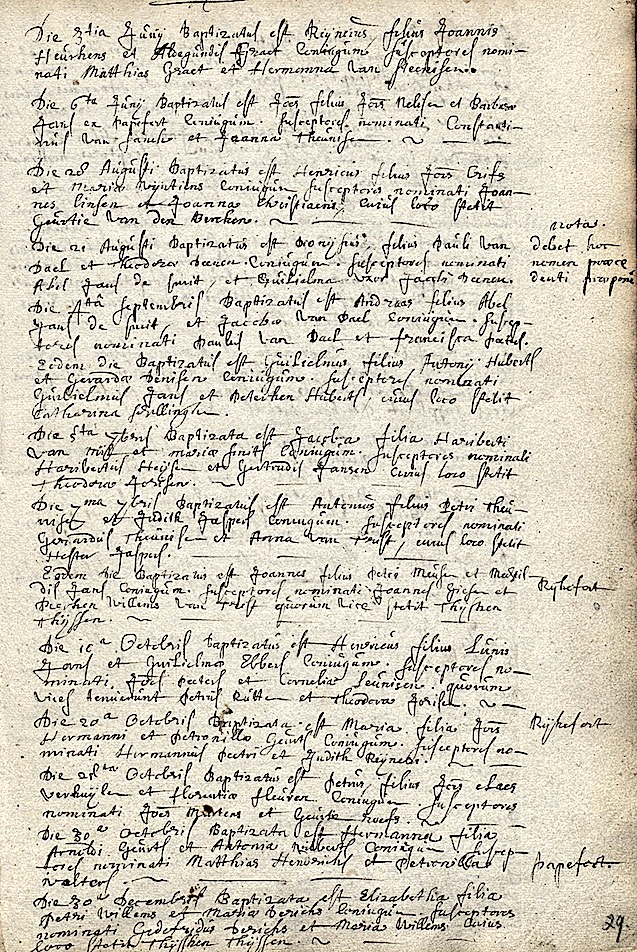 Die 3tia Junij Baptizatus est Reynerus filius Joannis
Heurkens et Aldegundis Graet Coniugum susceptores nomi-
nati Matthias Graet et Hermanna van
Die 6ta Junij Baptizatus est Joes filius Jois Nelissen et Barbara
Jans ex papefort Coniugum. susceptores nominati Constanti-
nus van et Joanna Theunisse.
Die 28 Augusti Baptizatus est Henricus filius Jois
et Maria Coniugum susceptores nominati Joan-
nes Linsen et Joanna Christiaens, cuius loco stetit
Geurtie van den Bercken.
nota.
Die 21 Augusti Baptizatus est Dionysius filius Pauli van
debet hoc
Dael et Theodora Deenen Coniugum. susceptores nominati
nomen praece
Abel Jans de smit, et Guilielma uxor Jacobi Deenen.
denti praeponi
Die 4ta Septembris Baptizatus est Andreas filius Abel
Jans de smit et Jacoba van Dael Coniugum. suscep-
tores nominati Paulus van Dael et Francisca
Eodem die Baptizatus est Guilielmus filius Antonij Huberts
et Gerarda Denissen Coniugum. susceptores nominati
Guilielmus Jans et Peterken Huberts cuius loco stetit
Catharina
Die 5ta 7bris Baptizata est Jacoba filia Hariberti
van et Maria Smits Coniugum. susceptores nominati
Haribertus Heysen et Gertrudis Jansen cuius loco stetit
Theodora
Die 7ma 7bris Baptizatus est Antonius filius Petri Theu-
nisse et Judith Jaspers Coniugum. susceptores nominati
Gerardus Theunissen et Anna van cuius loco stetit
Hester Jaspers.
Eodem die Baptizatus est Joannes filius Petri
dis Jans Coniugum. susceptores nominati Joannes et
Rijkefort
Deerken Willems van quorum vice stetit Thysken
Thyssen.
Die Octobris Baptizatus est Henricus filius
Jans et Guilielma Ebbers Coniugum. susceptores no-
minati, Joes Peters et Cornelia Teunissen. quorum
vices tenuerunt Petrus Rutten et Theodora
Die 20a Octobris Baptizata est Maria filia Jois
Rijkefort
Hermanni et Petronilla Geurts Coniugum. susceptores no-
minati Hermannus Petri et Judith Reyners.
Die Octobris Baptizatus est Petrus filius Jois Claes
et Florentia Heuren Coniugum susceptores
nominati Joes Martens et Geurtie Roefs.
Die 30a Octobris Baptizata est Hermanna filia
Arnoldi Geurts et Antonia Coniugum suscep-
tores nominati Matthias Hendricks et Petronilla
papefort.
Welters.
Die 30a Decembris Baptizata est Elizabetha filia
Petri Willems et Maria Derichs Coniugum susceptores
nominati Godefridus Derichs et Maria Willems cuius
29.
loco stetit Thysken Thyssen.